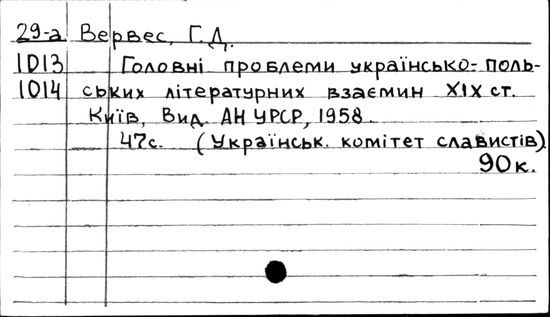 29-а Вервес, Г.Д.
1013 Головні проблеми українсько-поль-
1014 ських літературних взаємин XIX ст.
Київ, Вид. АН УРСР, 1958.
47с. (Українськ. комітет славистів)
90к.